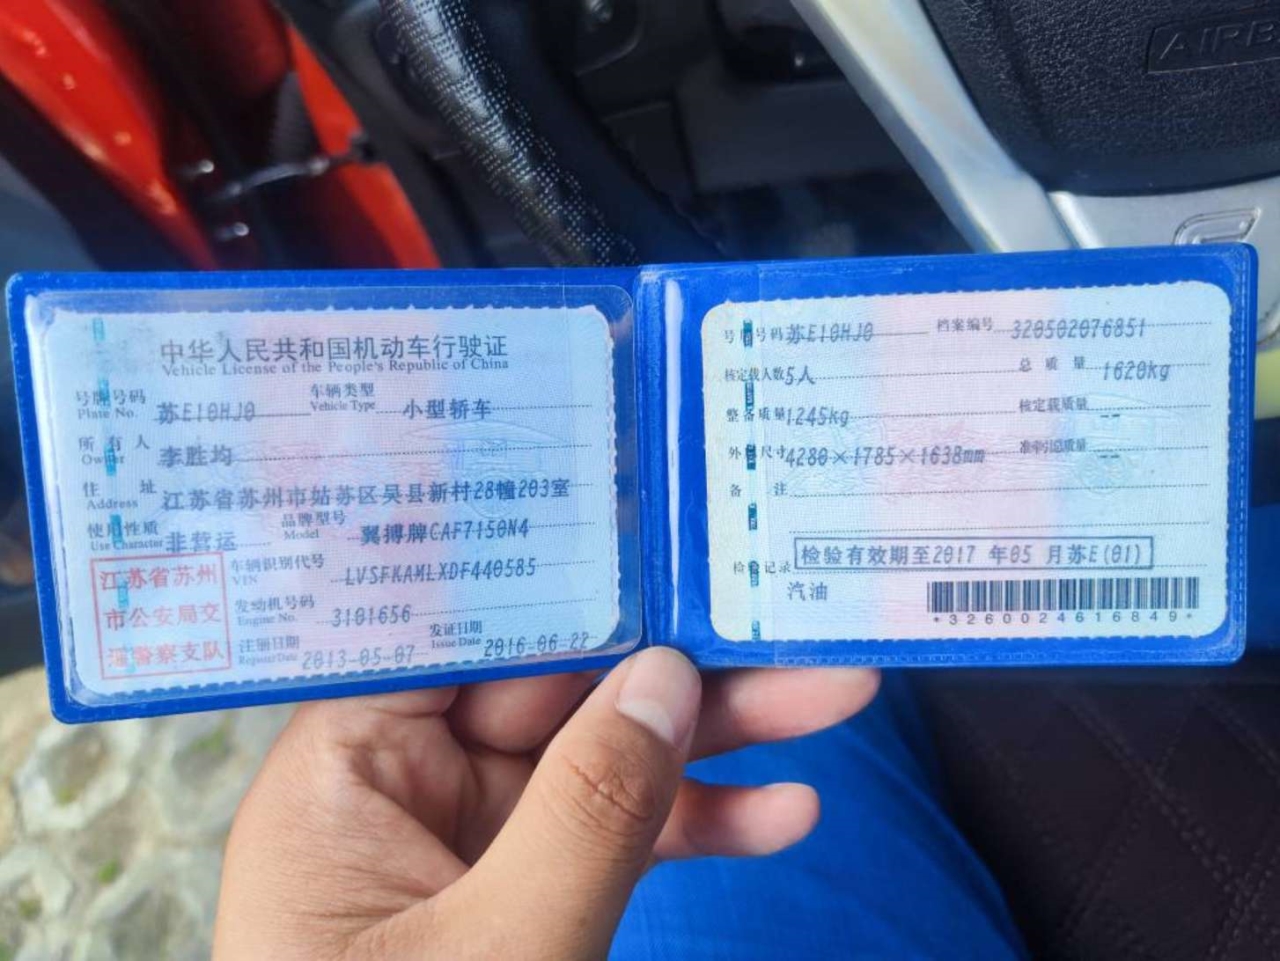 AIRB
中华人民共和国机动车行驶证
Vehicle License of the People's Republic of China
号牌号码 苏E10HJ0 车辆类型 小型轿车
Plate No. Vehicle Type
所有人 李胜均
Owner
住址 江苏省苏州市姑苏区吴县新村28幢203室
Address
使用性质 非营运 品牌型号 翼搏牌CAF7150N4
Use Character Model
车辆识别代号 LVSFKAMLXDF440585
VIN
发动机号码 3101656
Engine No.
注册日期 2013-05-07 发证日期 2016-06-22
Register Date Issue Date
江苏省苏州
市公安局交
通警察支队
号牌号码 苏E10HJ0 档案编号 320502076851
核定载人数 5人 总质量 1620kg
整备质量 1245kg 核定载质量 --
外廓尺寸 4280×1785×1638mm 准牵引总质量 --
备注
检验记录 检验有效期至2017年05月苏E(01)
汽油
*3260024616849*